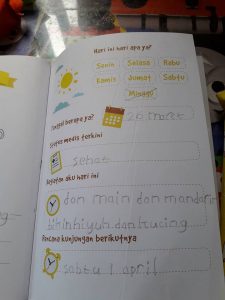 Hari ini hari apa ya?
Senin Selasa Rabu
Kamis Jumat Sabtu
Minggu
Tanggal berapa ya?
26 maret
Status medis terkini
sehat
Kegiatan aku hari ini
dan main dan mandarin
bikin hiyuh dan kucing
Rencana kunjungan berikutnya
sabtu 1 april